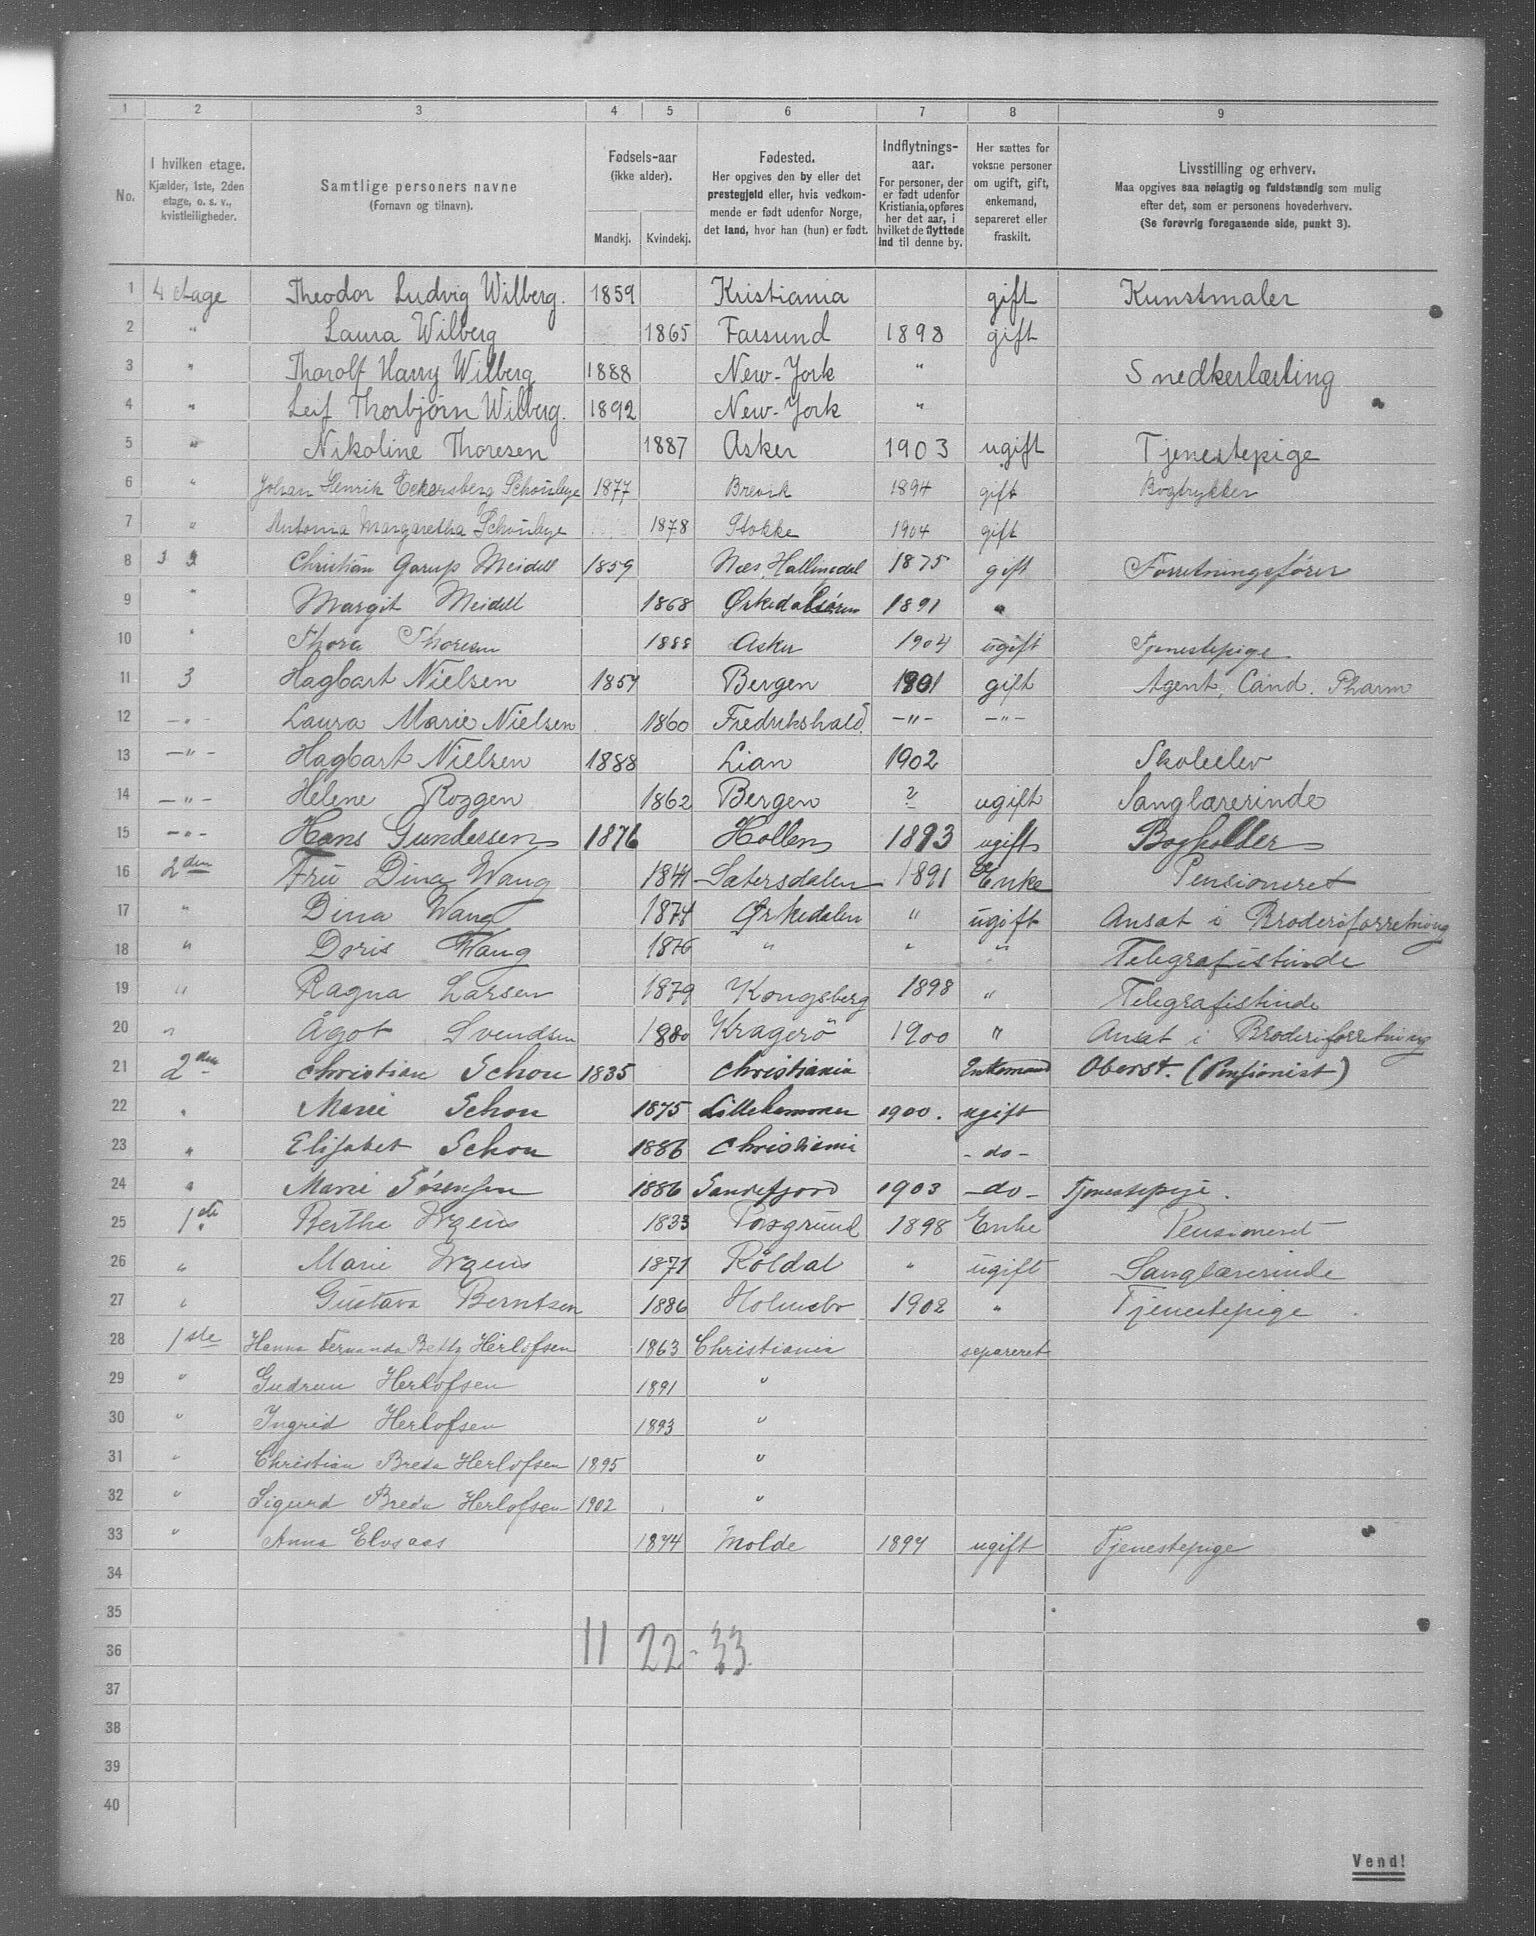 1 2 3 4 5 6 7 8 9
No. I hvilken etage. Kjælder, 1ste, 2den etage, o. s. v., kvistleiligheder. Samtlige personers navne (Fornavn og tilnavn). Fødsels-aar (ikke alder). Mandkj. Kvindekj. Fødested. Her opgives den by eller det prestegjeld eller, hvis vedkommende er født udenfor Norge, det land, hvor han (hun) er født. Indflytnings-aar. For personer, der er født udenfor Kristiania, opføres her det aar, i hvilket de flyttede ind til denne by. Her sættes for voksne personer om ugift, gift, enkemand, separeret eller fraskilt. Livsstilling og erhverv. Maa opgives saa nøiagtig og fuldstændig som mulig efter det, som er personens hovederhverv. (Se forøvrig foregaaende side, punkt 3).
1 4 etage Theodor Ludvig Wilberg. 1859 Kristiania gift Kunstmaler
2 " Laura Wilberg 1865 Farsund 1898 gift
3 " Thorolf Harry Wilberg 1888 New-York " Snedkerlærling
4 " Leif Thorbjørn Wilberg. 1892 New-York "
5 " Nikoline Thoresen 1887 Asker 1903 ugift Tjenestepige
6 " Johan Henrik Eckersberg 1877 Brevik 1894 gift Bogtrykker
7 " Antonia Margaretha 1878 Stokke 1904 gift
8 3 Christian Garup Meidell 1859 Næs, Hallingdal 1875 gift Forretningsfører
9 " Margit Meidell 1868 Ørkedalsøren 1891 "
10 " Thora Thoresen 1888 Asker 1904 ugift Tjenestepige.
11 3 Hagbart Nielsen 1857 Bergen 1901 gift Agent, Cand. Pharm
12 -"- Laura Marie Nielsen 1860 Fredrikshald. -"- -"-
13 -"- Hagbart Nielsen 1888 Lian 1902 Skoleelev
14 -"- Helene Roggen 1862 Bergen ? ugift Sanglærerinde
15 -"- Hans Gundersen 1876 Hollen 1893 ugift Bogholder
16 2den Fru Dina Wang 1841 Sætersdalen 1891 Enke Pensioneret
17 " Dina Wang 1874 Ørkedalen " ugift Ansat i Broderiforretning
18 " Doris Wang 1876 " " " Telegrafistinde
19 " Ragna Larsen 1879 Kongsberg 1898 " Telegrafistinde
20 " Ågot Svendsen 1880 Kragerö 1900 " Ansat i Broderiforretning
21 2den Christian Schou 1835 Christiania Enkemand Oberst. (Pensionist)
22 " Marie Schou 1875 Lillehammer 1900. ugift
23 " Elisabet Schou 1886 Christiania -do-
24 " Marie Sörensen 1886 Sandefjord 1903 -do- Tjenestepige.
25 1ste Berthe Irgens 1833 Porsgrund 1898 Enke Pensioneret
26 " Marie Irgens 1871 Röldal " ugift Sanglærerinde
27 " Gustava Berntsen 1886 Holmsbo 1902 " Tjenestepige
28 1ste Hanna Fernanda Betty Herlofsen 1863 Christiania separeret
29 " Gudrun Herlofsen 1891 "
30 " Ingrid Herlofsen 1893 "
31 " Christian Breda Herlofsen 1895 "
32 " Sigurd Breda Herlofsen 1902 "
33 " Anna Elvsaas 1874 Molde 1897 ugift Tjenestepige
34
35
36 11 22 - 33.
37
38
39
40
Vend!